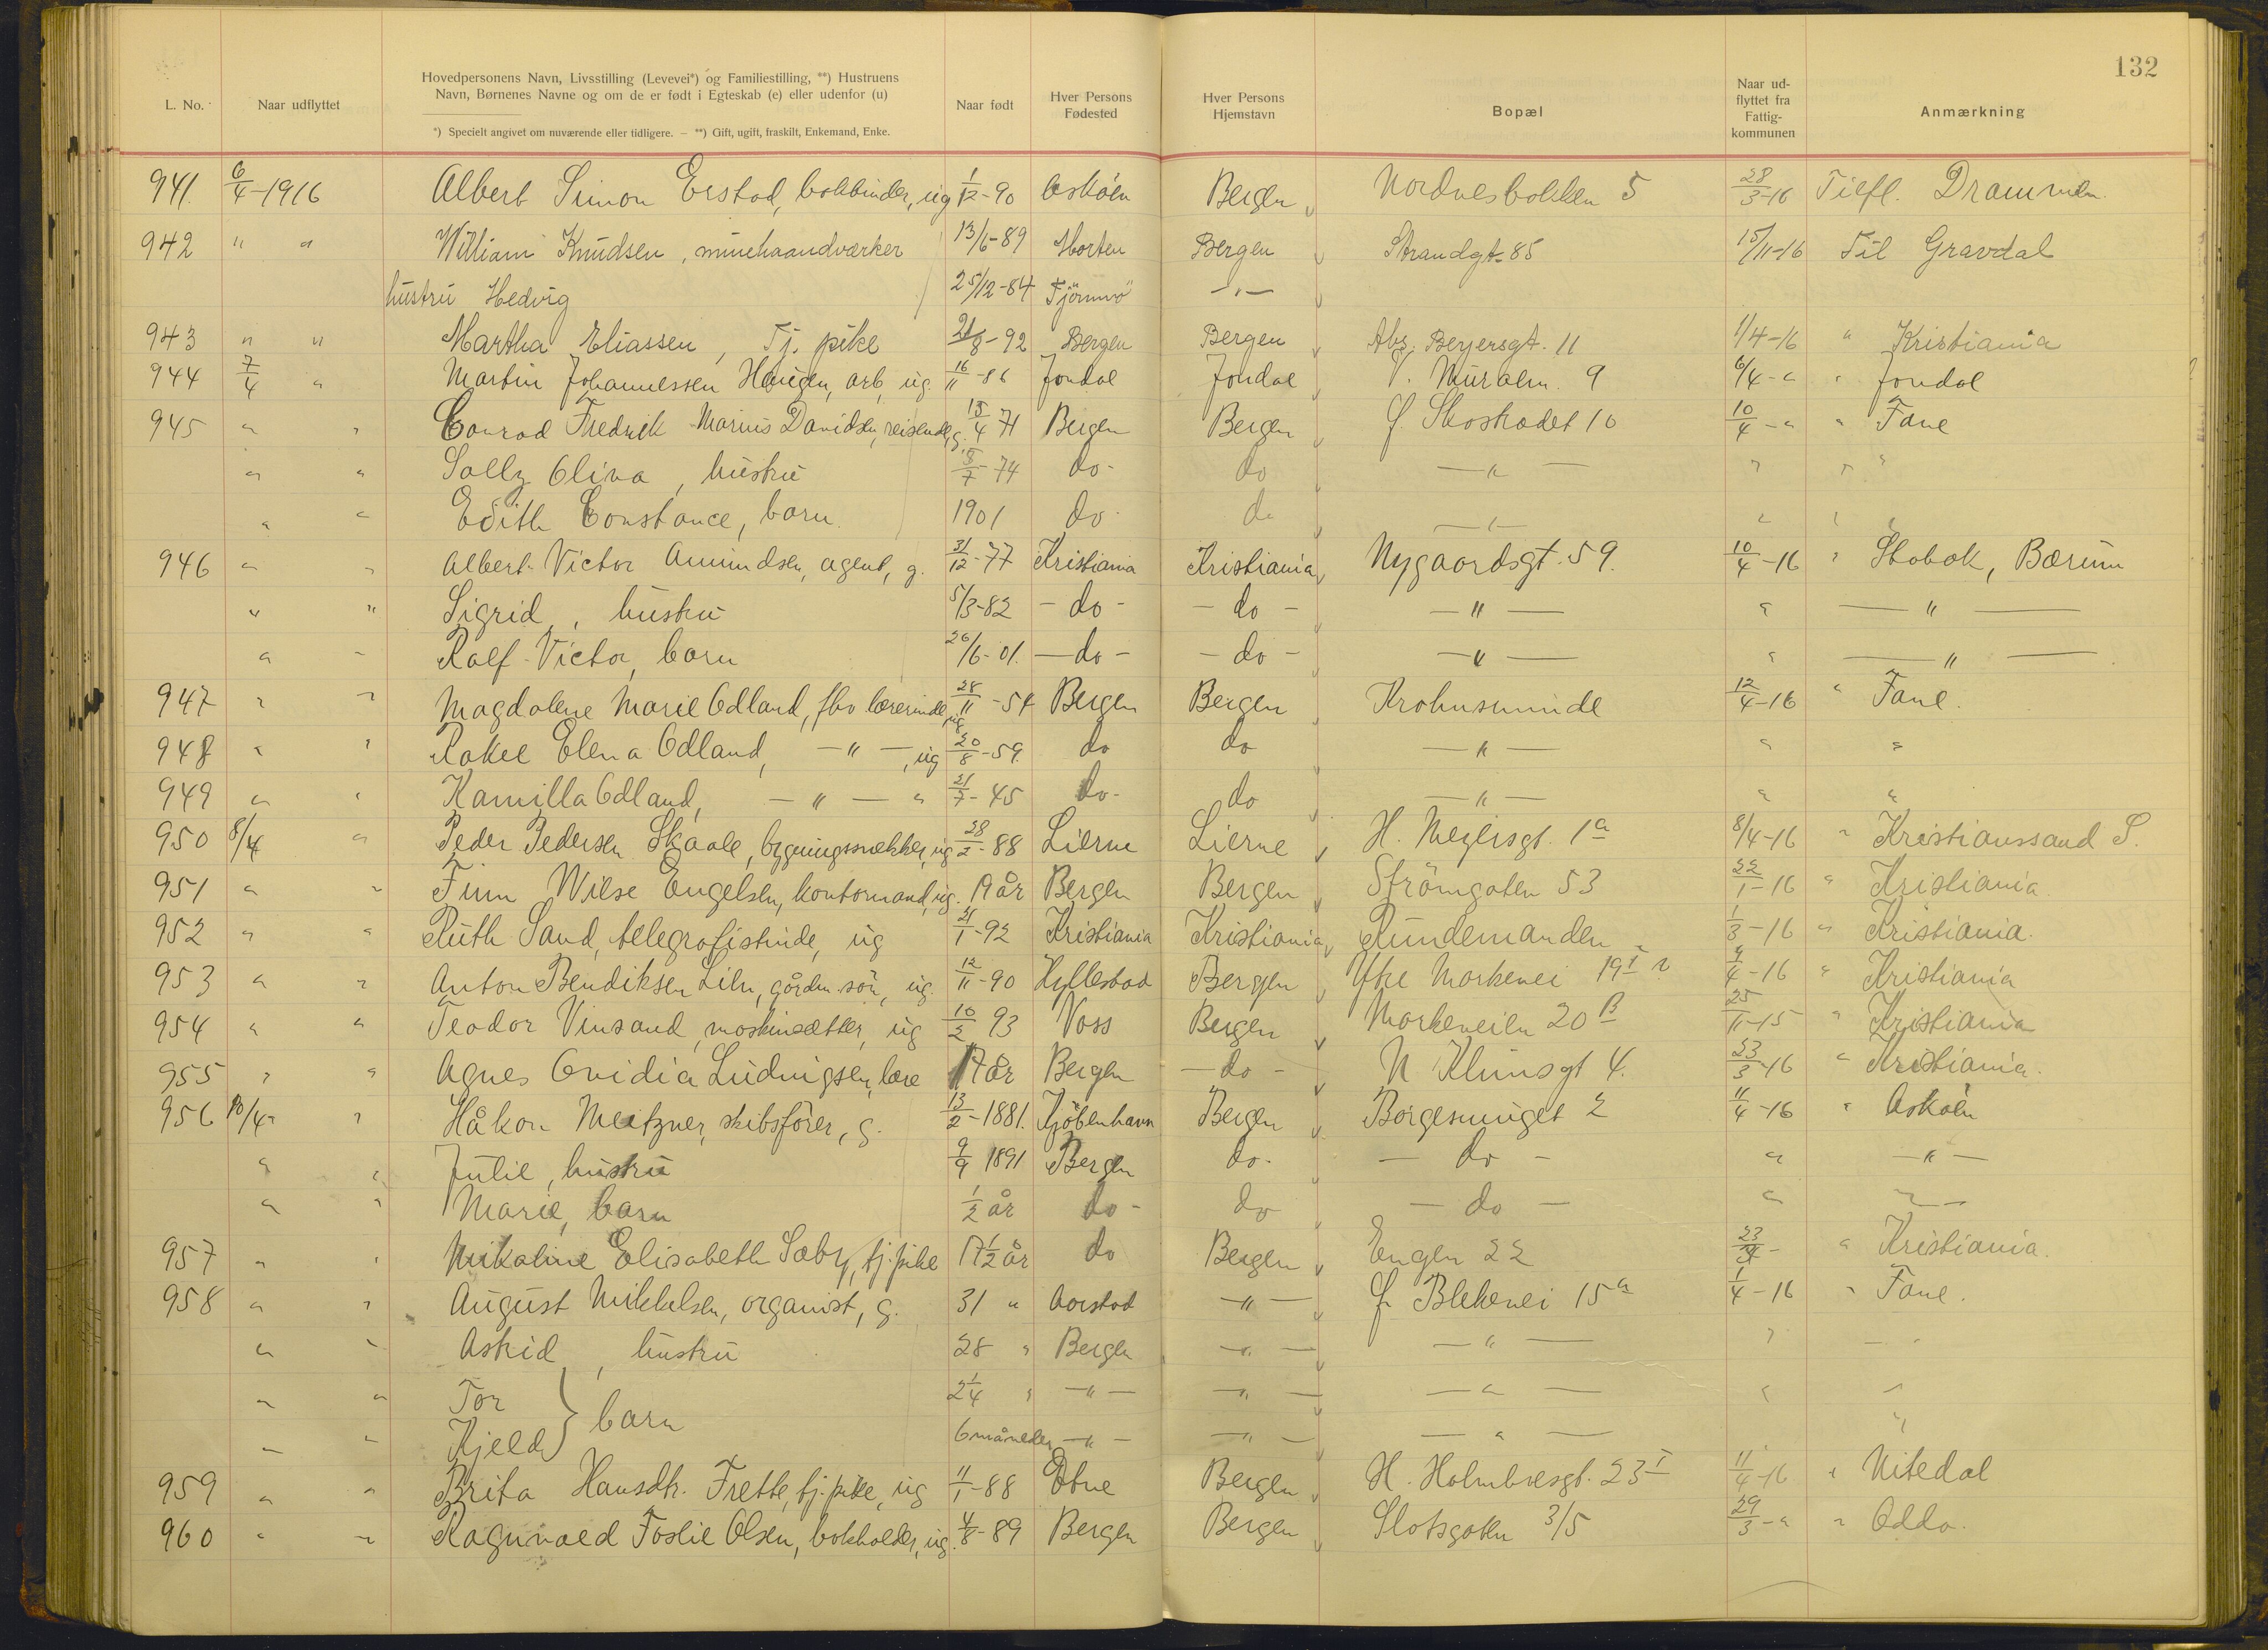 132
L. No.
Naar udflyttet
Hovedpersonens Navn, Livsstilling (Levevei*) og Familiestilling, **) Hustruens
Navn, Børnenes Navne og om de er født i Egteskab (e) eller udenfor (u)
*) Specielt angivet om nuværende eller tidligere. — **) Gift, ugift, fraskilt, Enkemand, Enke.
Naar født
Hver Persons Fødested
Hver Persons Hjemstavn
Bopæl
Naar ud-flyttet fra Fattig-kommunen
Anmærkning
941. 6/4-1916 Albert Simon Erstad, bokbinder, ug 1/12-90 Askøen Bergen Nordnesbakken 5 28/3-16 Tilfl. Drammen.
942 " " William Knudsen, minehaandværker 13/6-89 Horten Bergen Strandgt. 85 15/11-16 Til Gravdal
hustru Hedvig 25/12-84 -"-
943 " " Martha Eliassen, Tj. pike 21/8-92 Bergen Bergen Abs. Beyersgt. 11 1/4-16 " Kristiania
944 7/4 " Martin Johannessen Haugen, arb, ug. 16/11-86 Jondal Jondal V. Muralm. 9 6/4-" " Jondal
945 " " Conrad Fredrik Marius Davidsen, reisende, g. 15/4 71 Bergen Bergen f. Skostrædet 10 10/4-" " Fane
" " Sally Oliva, hustru 5/7-74 do- do -"- " " "
" " Edith Constance, barn 1901 do- do -"- " " "
946 " " Albert Victor Amundsen, agent, g. 31/12-77 Kristiania Kristiania Nygaardsgt. 59. 10/4-16 " Stabæk, Bærum
" " Sigrid, hustru 5/3-82 -do- -do- -"- " -"-
" - Ralf Victor, barn 26/6-01. -do- -do- -"- " -"-
947 " " Magdalene Marie Odland, fhv lærerinde, ug 28/11-54 Bergen Bergen Krohnsminde 12/4-16 " Fane.
948 " " Rakel Elena Odland, -"-, ug 20/8-59. do do -"- " "
949 " " Kamilla Odland, -"- " 21/7-45 do- do -"- " "
950 8/4 " Peder Pedersen Skaale, bygningssnekker, ug 28/2-88 Lierne Lierne H. Meyersgt. 1a 8/4-16 " Kristianssand S.
951 " " Finn Wilse Engelsen, kontormand, ug. 19 år Bergen Bergen Strömgaten 53 22/1-16 " Kristiania.
952 " " Ruth Sand, telegrafistinde, ug 21/1-92 Kristiania Kristiania Rundemanden 1/3-16 " Kristiania.
953 " " Anton Bendiksen Lihn, gårdm. sön, ug. 12/11-90 Hyllestad Bergen Ytre Markevei 19 4/4-16 " Kristiania
954 " " Teodor Vinsand, maskinsætter, ug 10/2 93 Voss Bergen Markeveien 20 B 25/11-15 " Kristiania
955 " " Agnes Ovidia Ludvigsen, lære 17 år Bergen -do- N. Klunsgt 4. 23/3-16 " Kristiania.
956 10/4 " Håkon Meitzner, skibsförer, g. 13/2-1881. Kjöbenhavn Bergen Borgesmuget 2 11/4-16 " Askøen
" " Julie, hustru 9/9 1891 Bergen do. -do- " -"-
" " Marie, barn 1/2 år do- do -do- " -"-
957 " " Mikaline Elisabeth Sæby, tj. pike 17 1/2 år do Bergen Engen 22 " Kristiania.
958 " " August Mikkelsen, organist, g. 31 " Aarstad -"- f. Blekevei 15a 1/4-16 " Fane.
" " Astrid, hustru 28 " Bergen -"- -"- " - "
" " Tor } barn 2 1/4 " -"- -"- -"- " "
" " Kjeld 6 måneder -"- -"- -"- "
959 " " Brita Hansdtr. Frette, tj. pike, ug 11/1-88 Etne Bergen H. Holmboesgt. 23 I 11/4-16 " Nitedal
960 " " Ragnvald Foslie Olsen, bokholder, ug. 4/8-89 Bergen Bergen Slotsgaten 3/5 29/3-" " Odda.